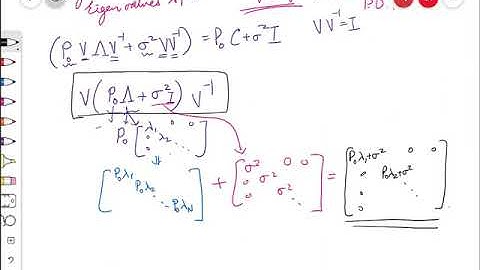 Eigenvalues λ₁
P.D.
(P₀ V Λ V⁻¹ + σ² V V⁻¹) = P₀ C + σ² I V V⁻¹ = I
V (P₀ Λ + σ² I) V⁻¹
P₀ [λ₁ 0 0 λ₂ ⋱]
[P₀λ₁ P₀λ₂ ⋱ P₀λN] + [σ² 0 0 0 σ² 0 σ² ⋱] = [P₀λ₁+σ² 0 0 0 P₀λ₂+σ² ⋱ 0 ⋱]